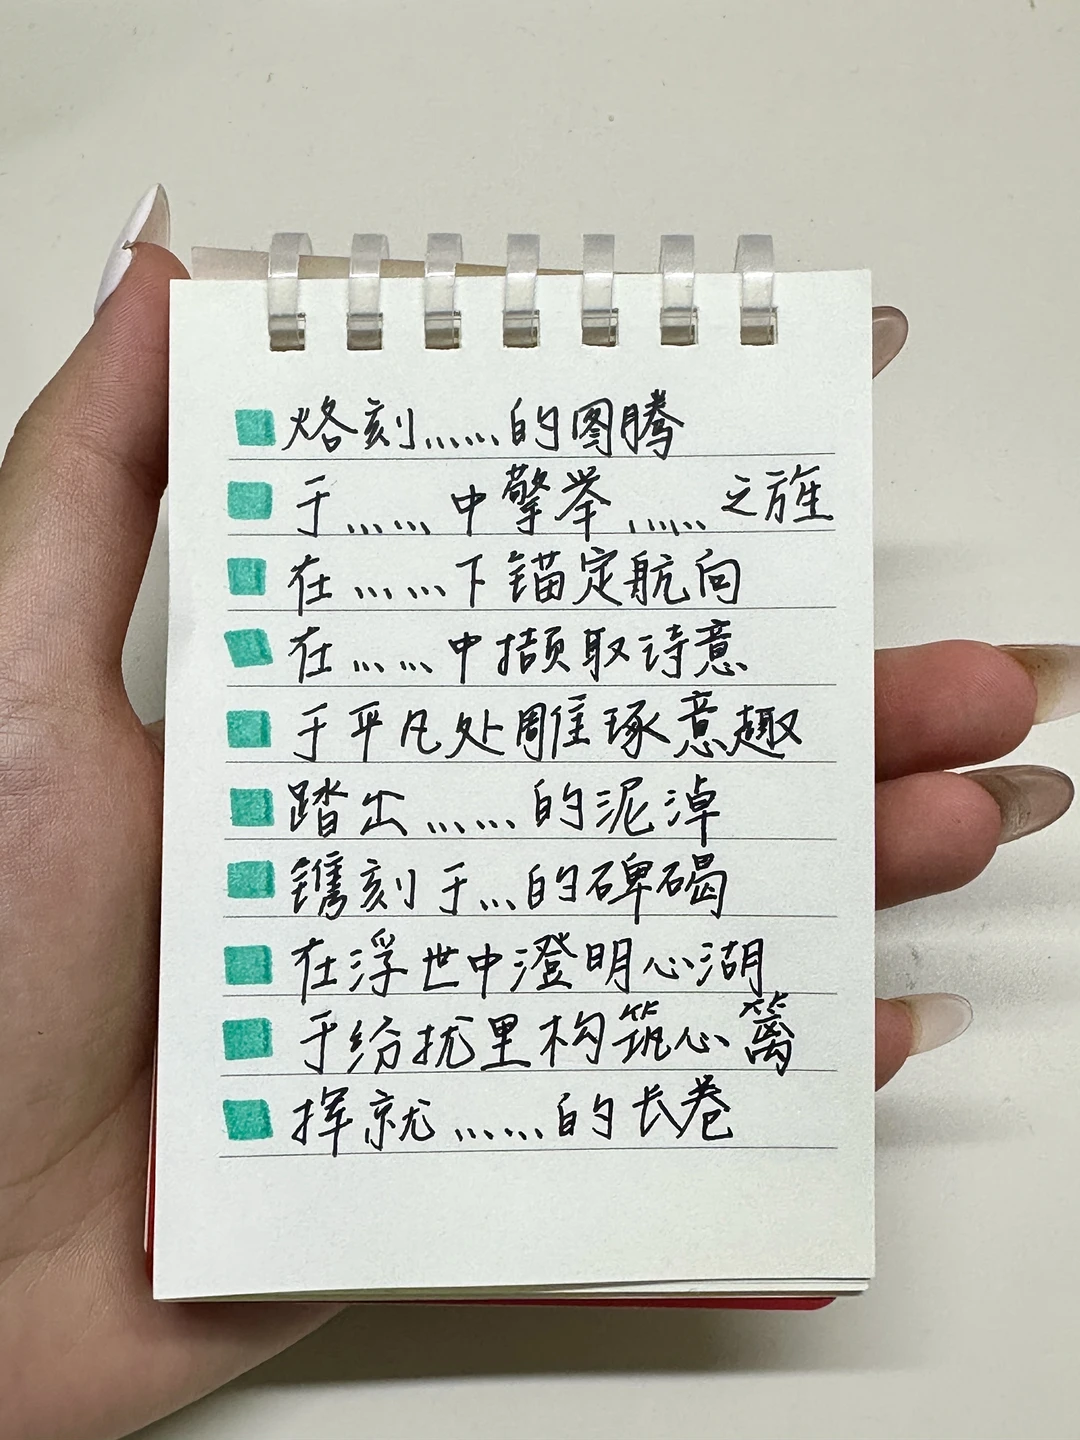 烙刻……的图腾
于……中擎举……之旌
在……下锚定航向
在……中撷取诗意
于平凡处雕琢意趣
踏出……的泥淖
镌刻于…的碑碣
在浮世中澄明心湖
于纷扰里构筑心篱
挥就……的长卷